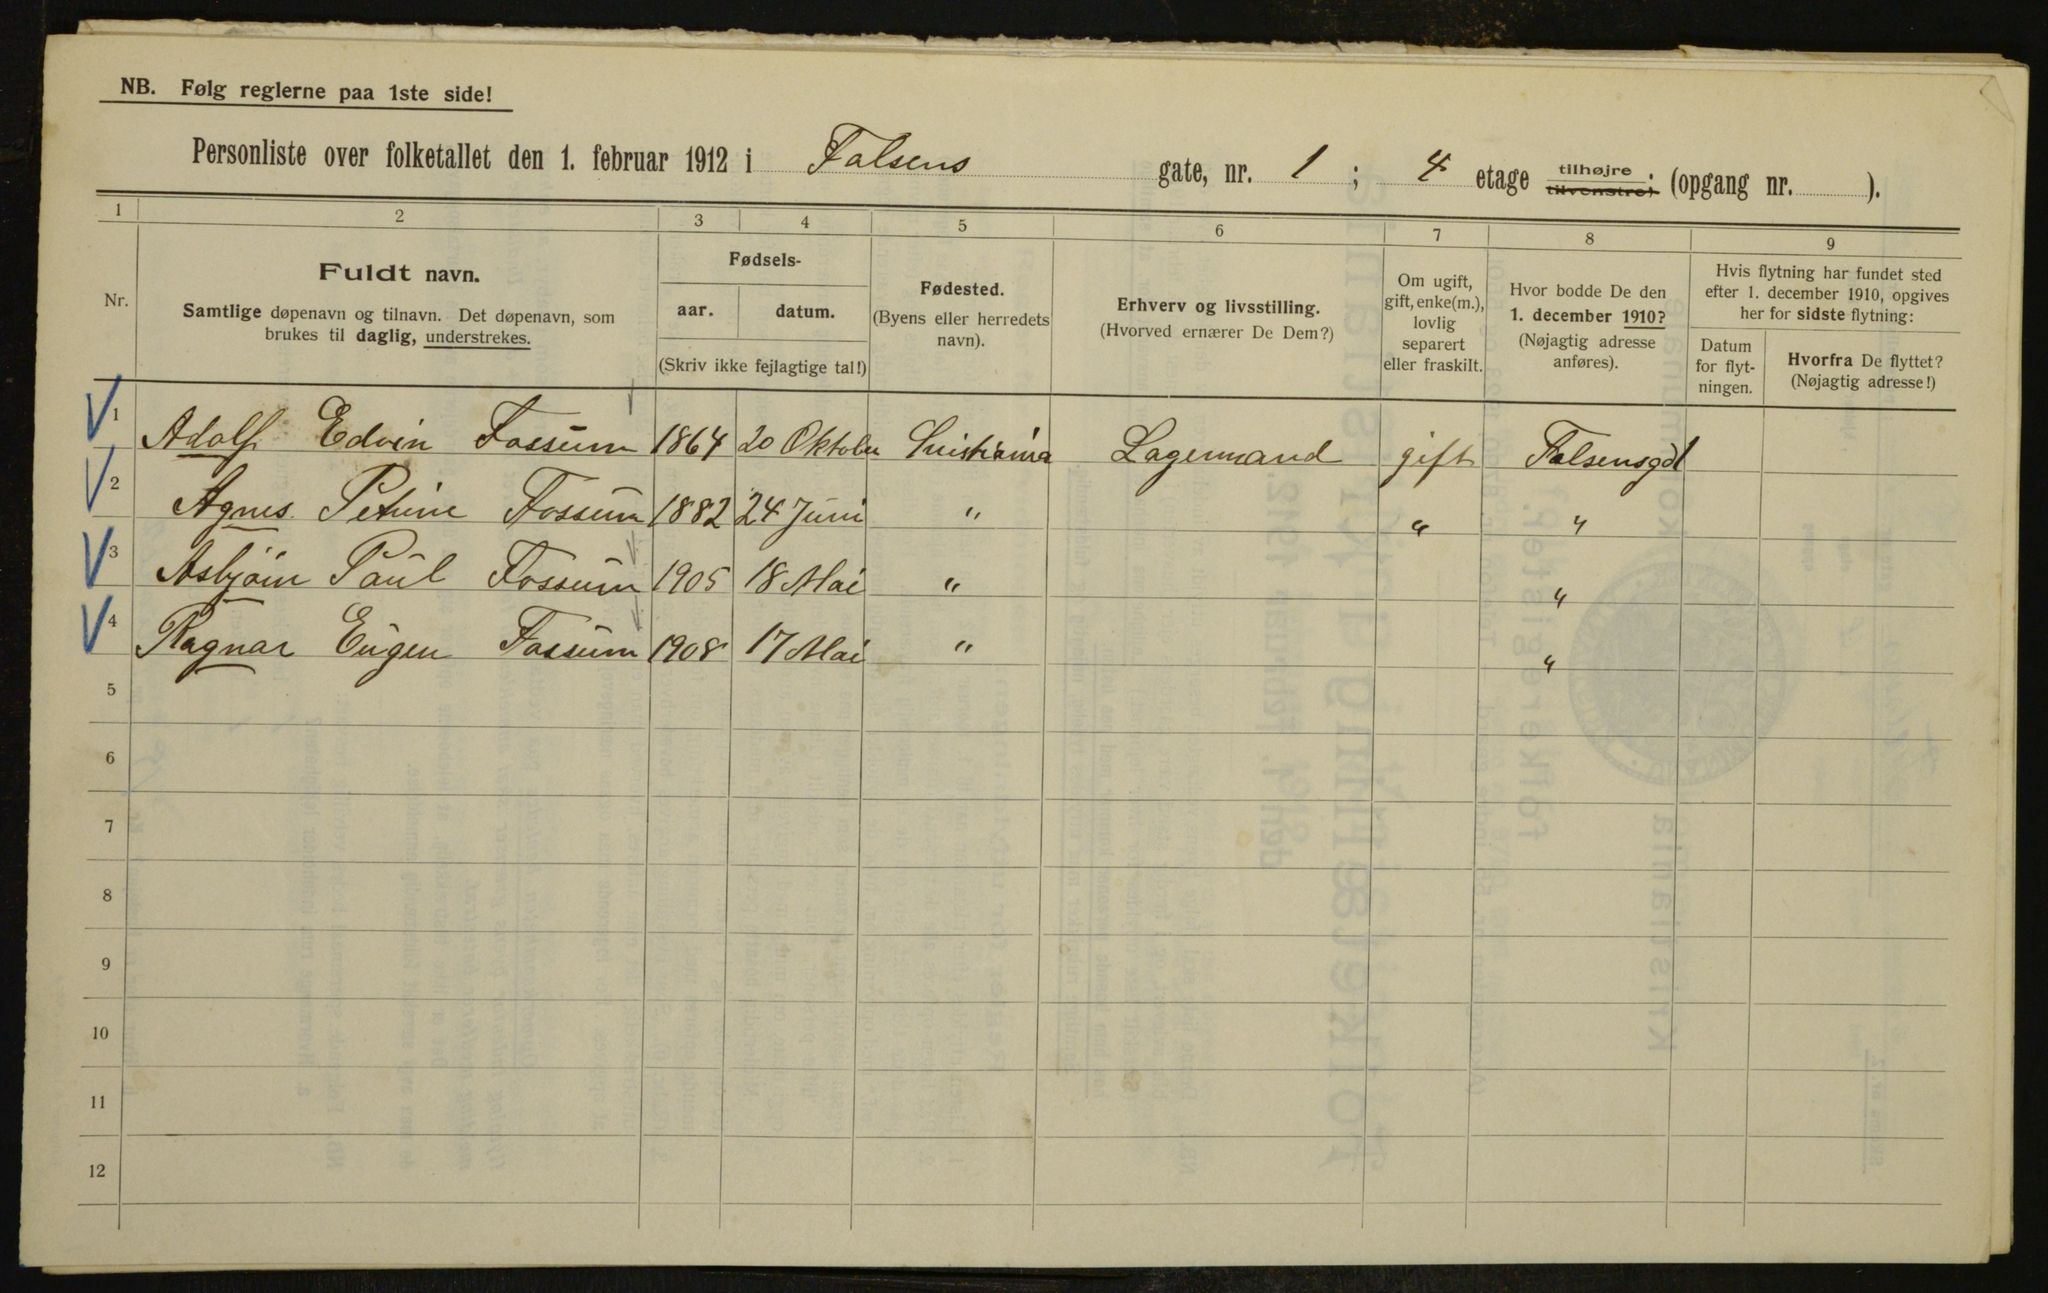 NB. Følg reglerne paa 1ste side!
Personliste over folketallet den 1. februar 1912 i Falsens gate, nr. 1 ; 4 etage tilhøjre, tilvenstre, (opgang nr. ).
1 2 3 4 5 6 7 8 9
Nr.
Fuldt navn.
Samtlige døpenavn og tilnavn. Det døpenavn, som
brukes til daglig, understrekes.
Fødsels-
aar. datum.
(Skriv ikke fejlagtige tal!)
Fødested.
(Byens eller herredets
navn).
Erhverv og livsstilling.
(Hvorved ernærer De Dem?)
Om ugift,
gift, enke(m.),
lovlig
separert
eller fraskilt.
Hvor bodde De den
1. december 1910?
(Nøjagtig adresse
anføres).
Hvis flytning har fundet sted
efter 1. december 1910, opgives
her for sidste flytning:
Datum
for flyt-
ningen.
Hvorfra De flyttet?
(Nøjagtig adresse!)
1 Adolf Edvin Fossum 1864 20 Oktober Kristiania Lagermand gift Falsensgd 1
2 Agnes Petrine Fossum 1882 24 Juni " " "
3 Asbjörn Paul Fossum 1905 18 Mai " "
4 Ragnar Eugen Fossum 1908 17 Mai " "
5
6
7
8
9
10
11
12